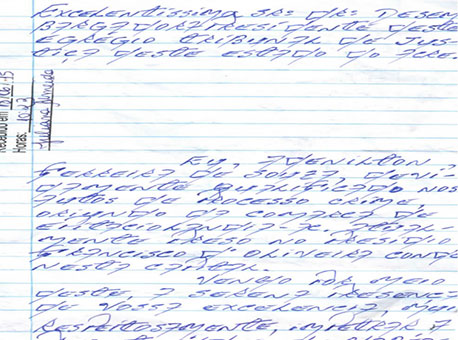 EXCELENTISSIMA SRª DRª DESEM
BARGADORA PRESIDENTE DESTE
EGREGIO TRIBUNAL DE JUS-
TIÇA DESTE ESTADO DO ACRE.
Recebido em
Horas:
Juliana Almeida
EU, ADENILTON
FERREIRA DE SOUZA, DEVI-
DAMENTE QUALIFICADO NOS
AUTOS DE PROCESSO CRIME,
ORIUNDO DA COMARCA DE
EPITACIOLANDIA-AC. ATUAL-
MENTE PRESO NO PRESIDIO
FRANCISCO D' OLIVEIRA CONDE
NESTA CAPITAL.
VENHO POR MEIO
DESTE, A SERENA PRESENÇ
DE VOSSA EXCELENCIA, MUI
RESPEITOSAMENTE, IMPETRAR A